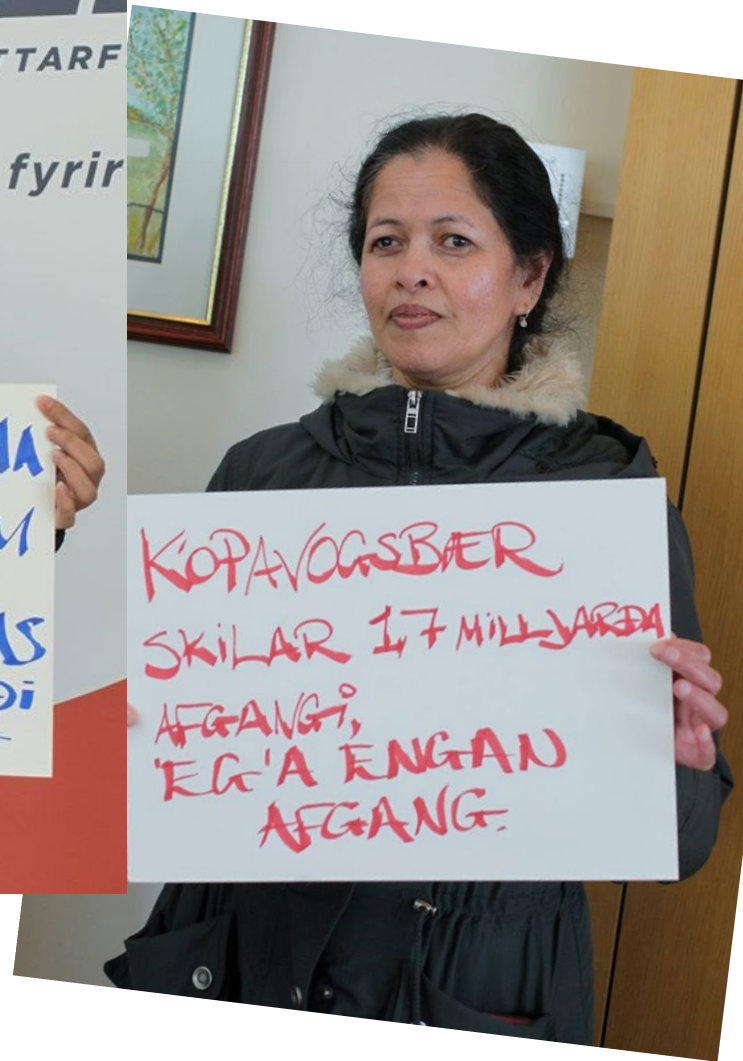 TTARF
fyrir
IA
M
AS
ÐI
KÓPAVOGSBÆR
SKILAR 1,7 MILLJARÐA
AFGANGI,
ÉG Á ENGAN
AFGANG.